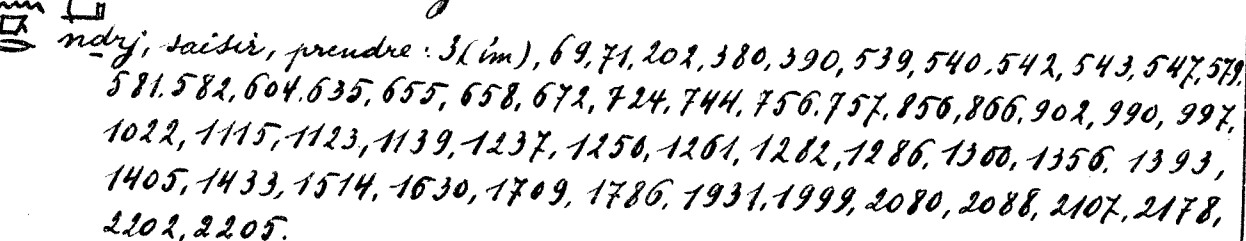 nḏrj, saisir, prendre : 3(im), 69, 71, 202, 380, 390, 539, 540. 542, 543, 547, 579,
581. 582, 604. 635, 655, 658, 672, 724, 744, 756. 757, 856, 866, 902, 990, 997,
1022, 1115, 1123, 1139, 1237, 1250, 1261, 1282, 1286, 1300, 1356. 1393,
1405, 1433, 1514, 1630, 1709, 1786, 1931, 1999, 2080, 2088, 2107, 2178,
2202, 2205.